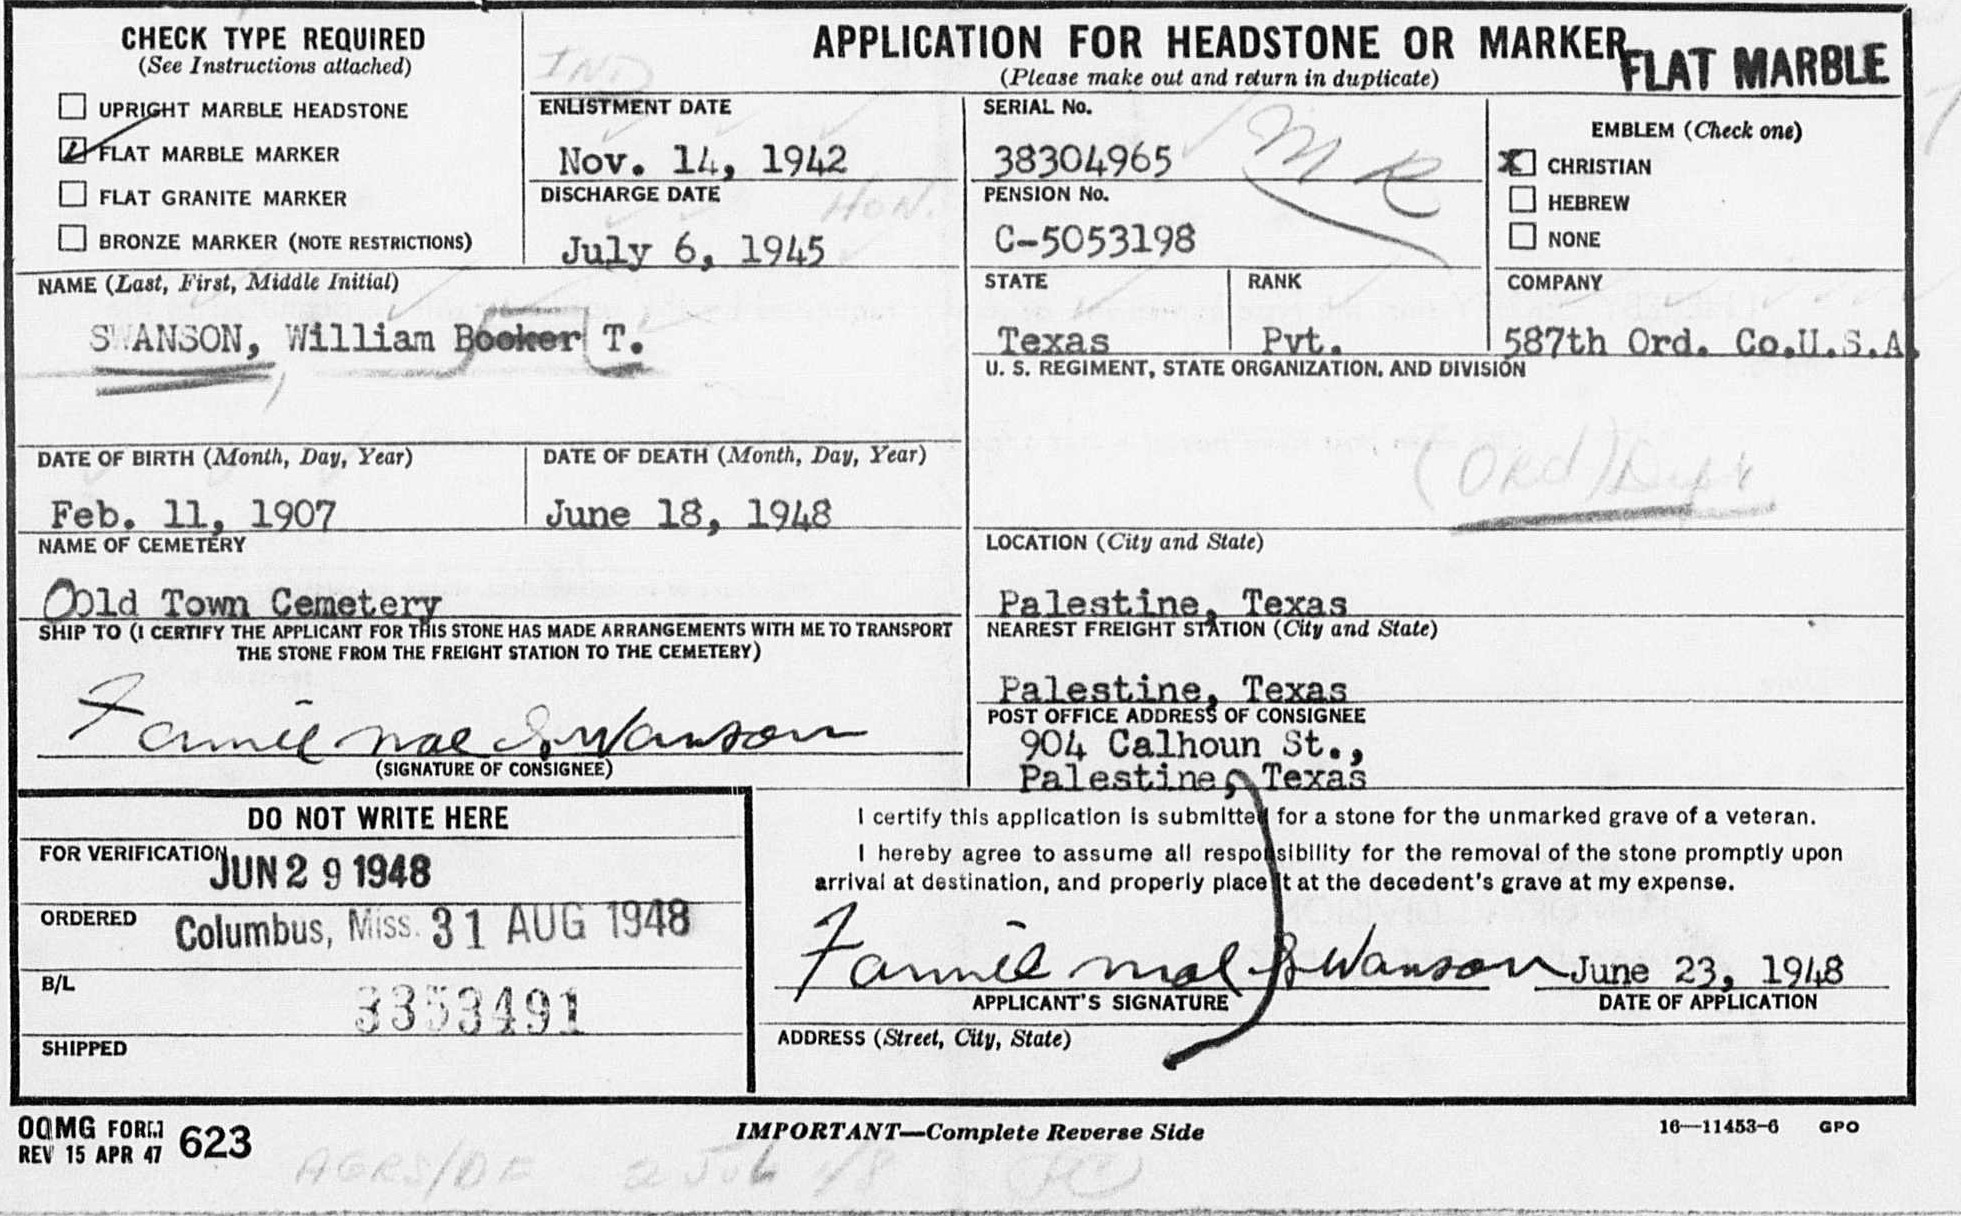 CHECK TYPE REQUIRED
(See Instructions attached)
UPRIGHT MARBLE HEADSTONE
FLAT MARBLE MARKER
FLAT GRANITE MARKER
BRONZE MARKER (NOTE RESTRICTIONS)
APPLICATION FOR HEADSTONE OR MARKER
(Please make out and return in duplicate)
FLAT MARBLE
IND
ENLISTMENT DATE
Nov. 14, 1942
DISCHARGE DATE
HON.
July 6, 1945
SERIAL No.
38304965
PENSION No.
C-5053198
EMBLEM (Check one)
X CHRISTIAN
HEBREW
NONE
NAME (Last, First, Middle Initial)
SWANSON, William Booker T.
STATE
Texas
RANK
Pvt.
COMPANY
587th Ord. Co.U.S.A.
U. S. REGIMENT, STATE ORGANIZATION, AND DIVISION
(Ord) Dept
DATE OF BIRTH (Month, Day, Year)
Feb. 11, 1907
DATE OF DEATH (Month, Day, Year)
June 18, 1948
NAME OF CEMETERY
Old Town Cemetery
LOCATION (City and State)
Palestine, Texas
SHIP TO (I CERTIFY THE APPLICANT FOR THIS STONE HAS MADE ARRANGEMENTS WITH ME TO TRANSPORT
THE STONE FROM THE FREIGHT STATION TO THE CEMETERY)
Fannie Mae Swanson
(SIGNATURE OF CONSIGNEE)
NEAREST FREIGHT STATION (City and State)
Palestine, Texas
POST OFFICE ADDRESS OF CONSIGNEE
904 Calhoun St.,
Palestine, Texas
DO NOT WRITE HERE
FOR VERIFICATION
JUN 29 1948
ORDERED
Columbus, Miss. 31 AUG 1948
B/L
3353491
SHIPPED
I certify this application is submitted for a stone for the unmarked grave of a veteran.
I hereby agree to assume all responsibility for the removal of the stone promptly upon
arrival at destination, and properly place it at the decedent's grave at my expense.
Fannie Mae Swanson
APPLICANT'S SIGNATURE
June 23, 1948
DATE OF APPLICATION
ADDRESS (Street, City, State)
OQMG FORM 623
REV 15 APR 47
IMPORTANT—Complete Reverse Side
16—11453-6 GPO